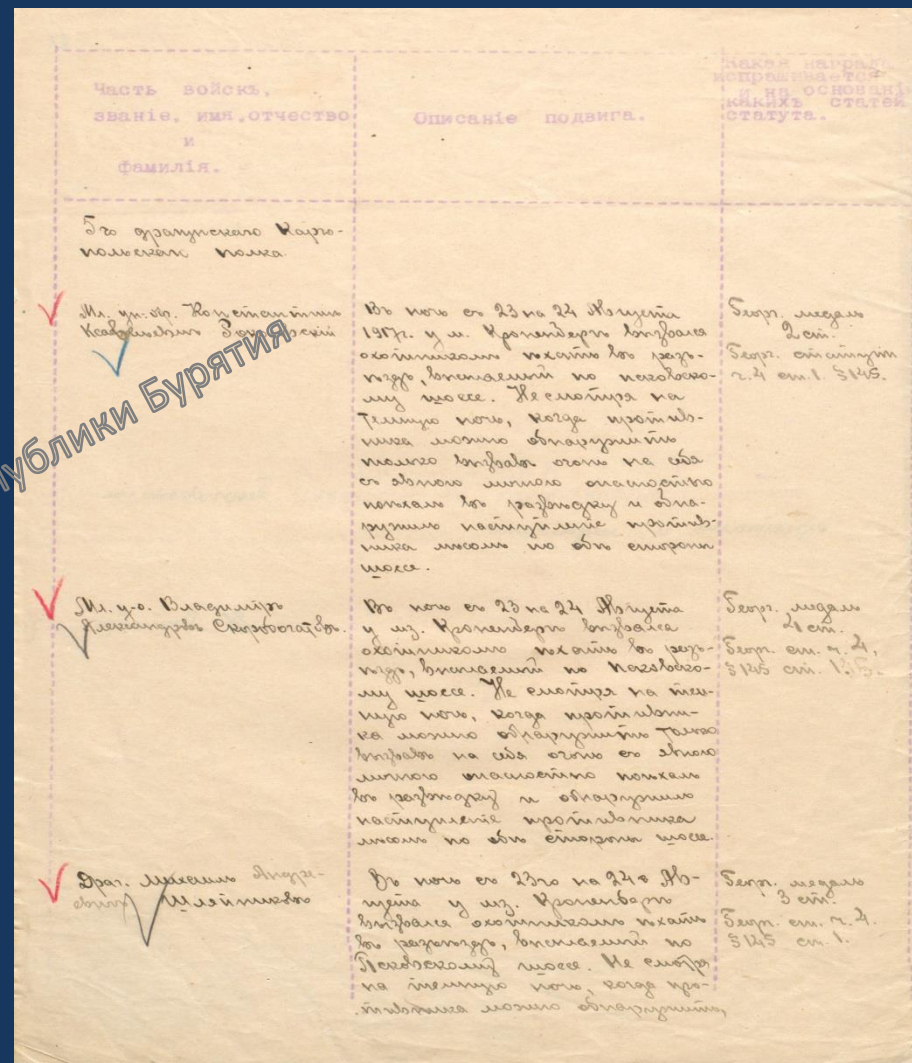 Часть войскъ,
званіе, имя, отчество
и
фамилія.
Описаніе подвига.
Какая награда
испрашивается
и на основані
какихъ статей
статута.
5го драгунскаго Карго-
польскаго полка
Мл. ун.-оф. Константинъ
Въ ночь съ 23 на 24 Августа
1917г. у м. Кроненбергъ вызвался
охотникомъ ѣхать въ разъ-
ѣздъ, высылаемый по псковско-
му шоссе. Не смотря на
темную ночь, когда против-
ника можно обнаружить
только вызвавъ огонь на себя
съ явною личною опасностью
поѣхалъ въ развѣдку и обна-
ружилъ наступленіе против-
ника лѣсомъ по обѣ стороны
шоссе.
Георг. медаль
2 ст.
Георг. статутъ
ч.4 ст.1. §145.
публики Бурятия
Мл. у-о. Владиміръ
Александровъ Скоробогатовъ.
Въ ночь съ 23 на 24 Августа
у мз. Кроненбергъ вызвался
охотникомъ ѣхать въ разъ-
ѣздъ, высылаемый по Псковско-
му шоссе. Не смотря на тем-
ную ночь, когда противни-
ка можно обнаружить только
вызвавъ на себя огонь съ явною
личною опасностью поѣхалъ
въ развѣдку и обнаружилъ
наступленіе противника
лѣсомъ по обѣ стороны шоссе.
Георг. медаль
ст.
Георг. ст. ч. 4,
§145 ст. 1.
Драг. Михаилъ Андре-
евичъ Шлейниковъ
Въ ночь съ 23го на 24е Ав-
густа у мз. Кроненборгъ
вызвался охотникомъ ѣхать
въ разъѣздъ, высылаемый по
Псковскому шоссе. Не смотря
на темную ночь, когда про-
тивника можно обнаружить,
Георг. медаль
3 ст.
Георг. ст. ч. 4.
§145 ст. 1.